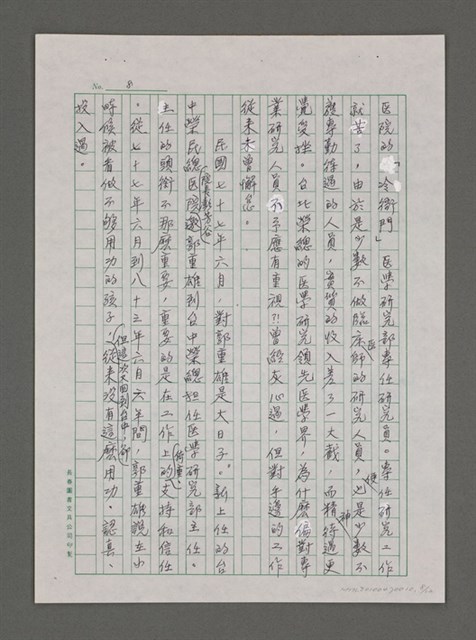 No. 8
医院的「冷衙門」医學研究部專任研究員。專任研究工作
就苦了，由於是少數不做臨床医師的研究人員，也便是少數不
按專勤待遇的人員，實質的收入差了一大截，而精神待遇更
覺受挫。台北榮總的医學研究領先医學界，為什麼偏對專
業研究人員不予應有重視?!曾經灰心過，但對手邊的工作
從来未曾懈怠。
民國七十七年六月，對郭重雄是大日子。新上任的台
中榮民總医院院長彭芳谷邀郭重雄到台中榮總担任医學研究部主任。
主任的頭銜不那麼重要，重要的是在工作上的倚重、支持和信任
。從七十七年六月到八十三年六月六年間，郭重雄說在小
時候被看做不够用功的孩子，但這次回到台中，卻從来沒有這麼用功、認真、
投入過。
長春圖書文具公司印製